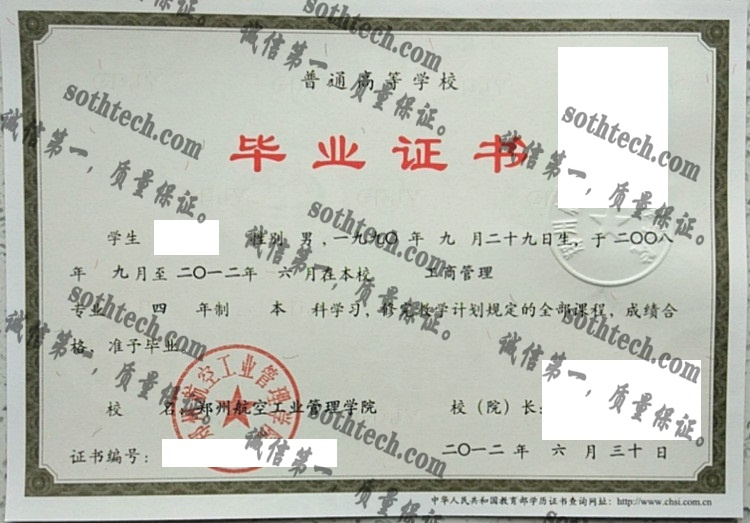 普通高等学校
毕业证书
学生 性别 男，一九九〇年 九 月二十九日生，于二〇〇八
年 九月至二〇一二年 六月在本校 工商管理
专业 四 年制 本 科学习，修完教学计划规定的全部课程，成绩合
格，准予毕业
校 名：郑州航空工业管理学院 校（院）长：
证书编号： 二〇一二年 六 月 三十日
中华人民共和国教育部学历证书查询网址：http://www.chsi.com.cn
郑州航空工业管理学院
sothtech.com
诚信第一，质量保证。
sothtech.com
诚信第一，质量保证。
sothtech.com
诚信第一，质量保证。
sothtech.com
诚信第一，质量保证。
sothtech.com
诚信第一，质量保证。
sothtech.com
诚信第一，质量保证。
sothtech.com
诚信第一，质量保证。
sothtech.com
诚信第一，质量保证。
sothtech.com